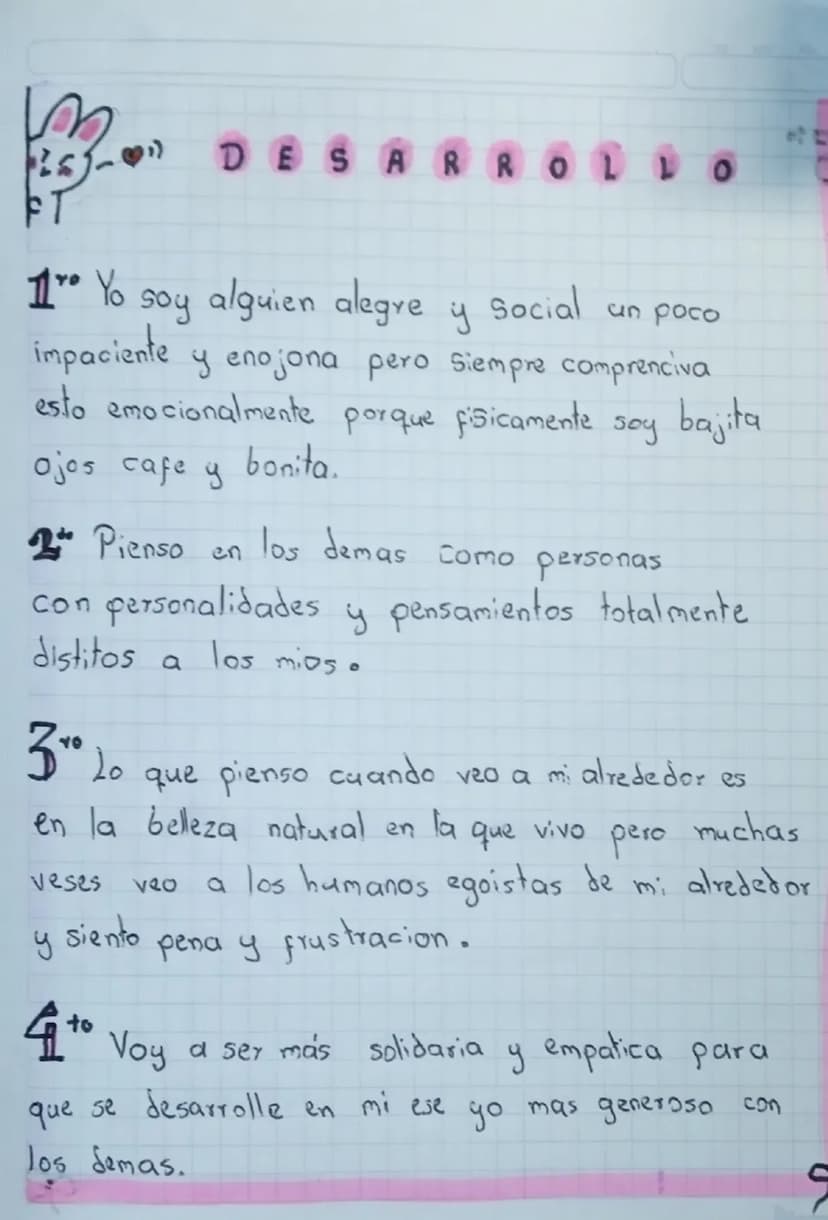 DESARROLLO
1ro Yo soy alguien alegre y social un poco
impaciente y enojona pero siempre comprenciva
esto emocionalmente porque fisicamente soy bajita
ojos cafe y bonita.
2do Pienso en los demas como personas
con personalidades y pensamientos totalmente
distitos a los mios.
3ro Lo que pienso cuando veo a mi alrededor es
en la belleza natural en la que vivo pero muchas
veses veo a los humanos egoistas de mi alrededor
y siento pena y frustracion.
4to Voy a ser más solidaria y empatica para
que se desarrolle en mi ese yo mas generoso con
los demas.